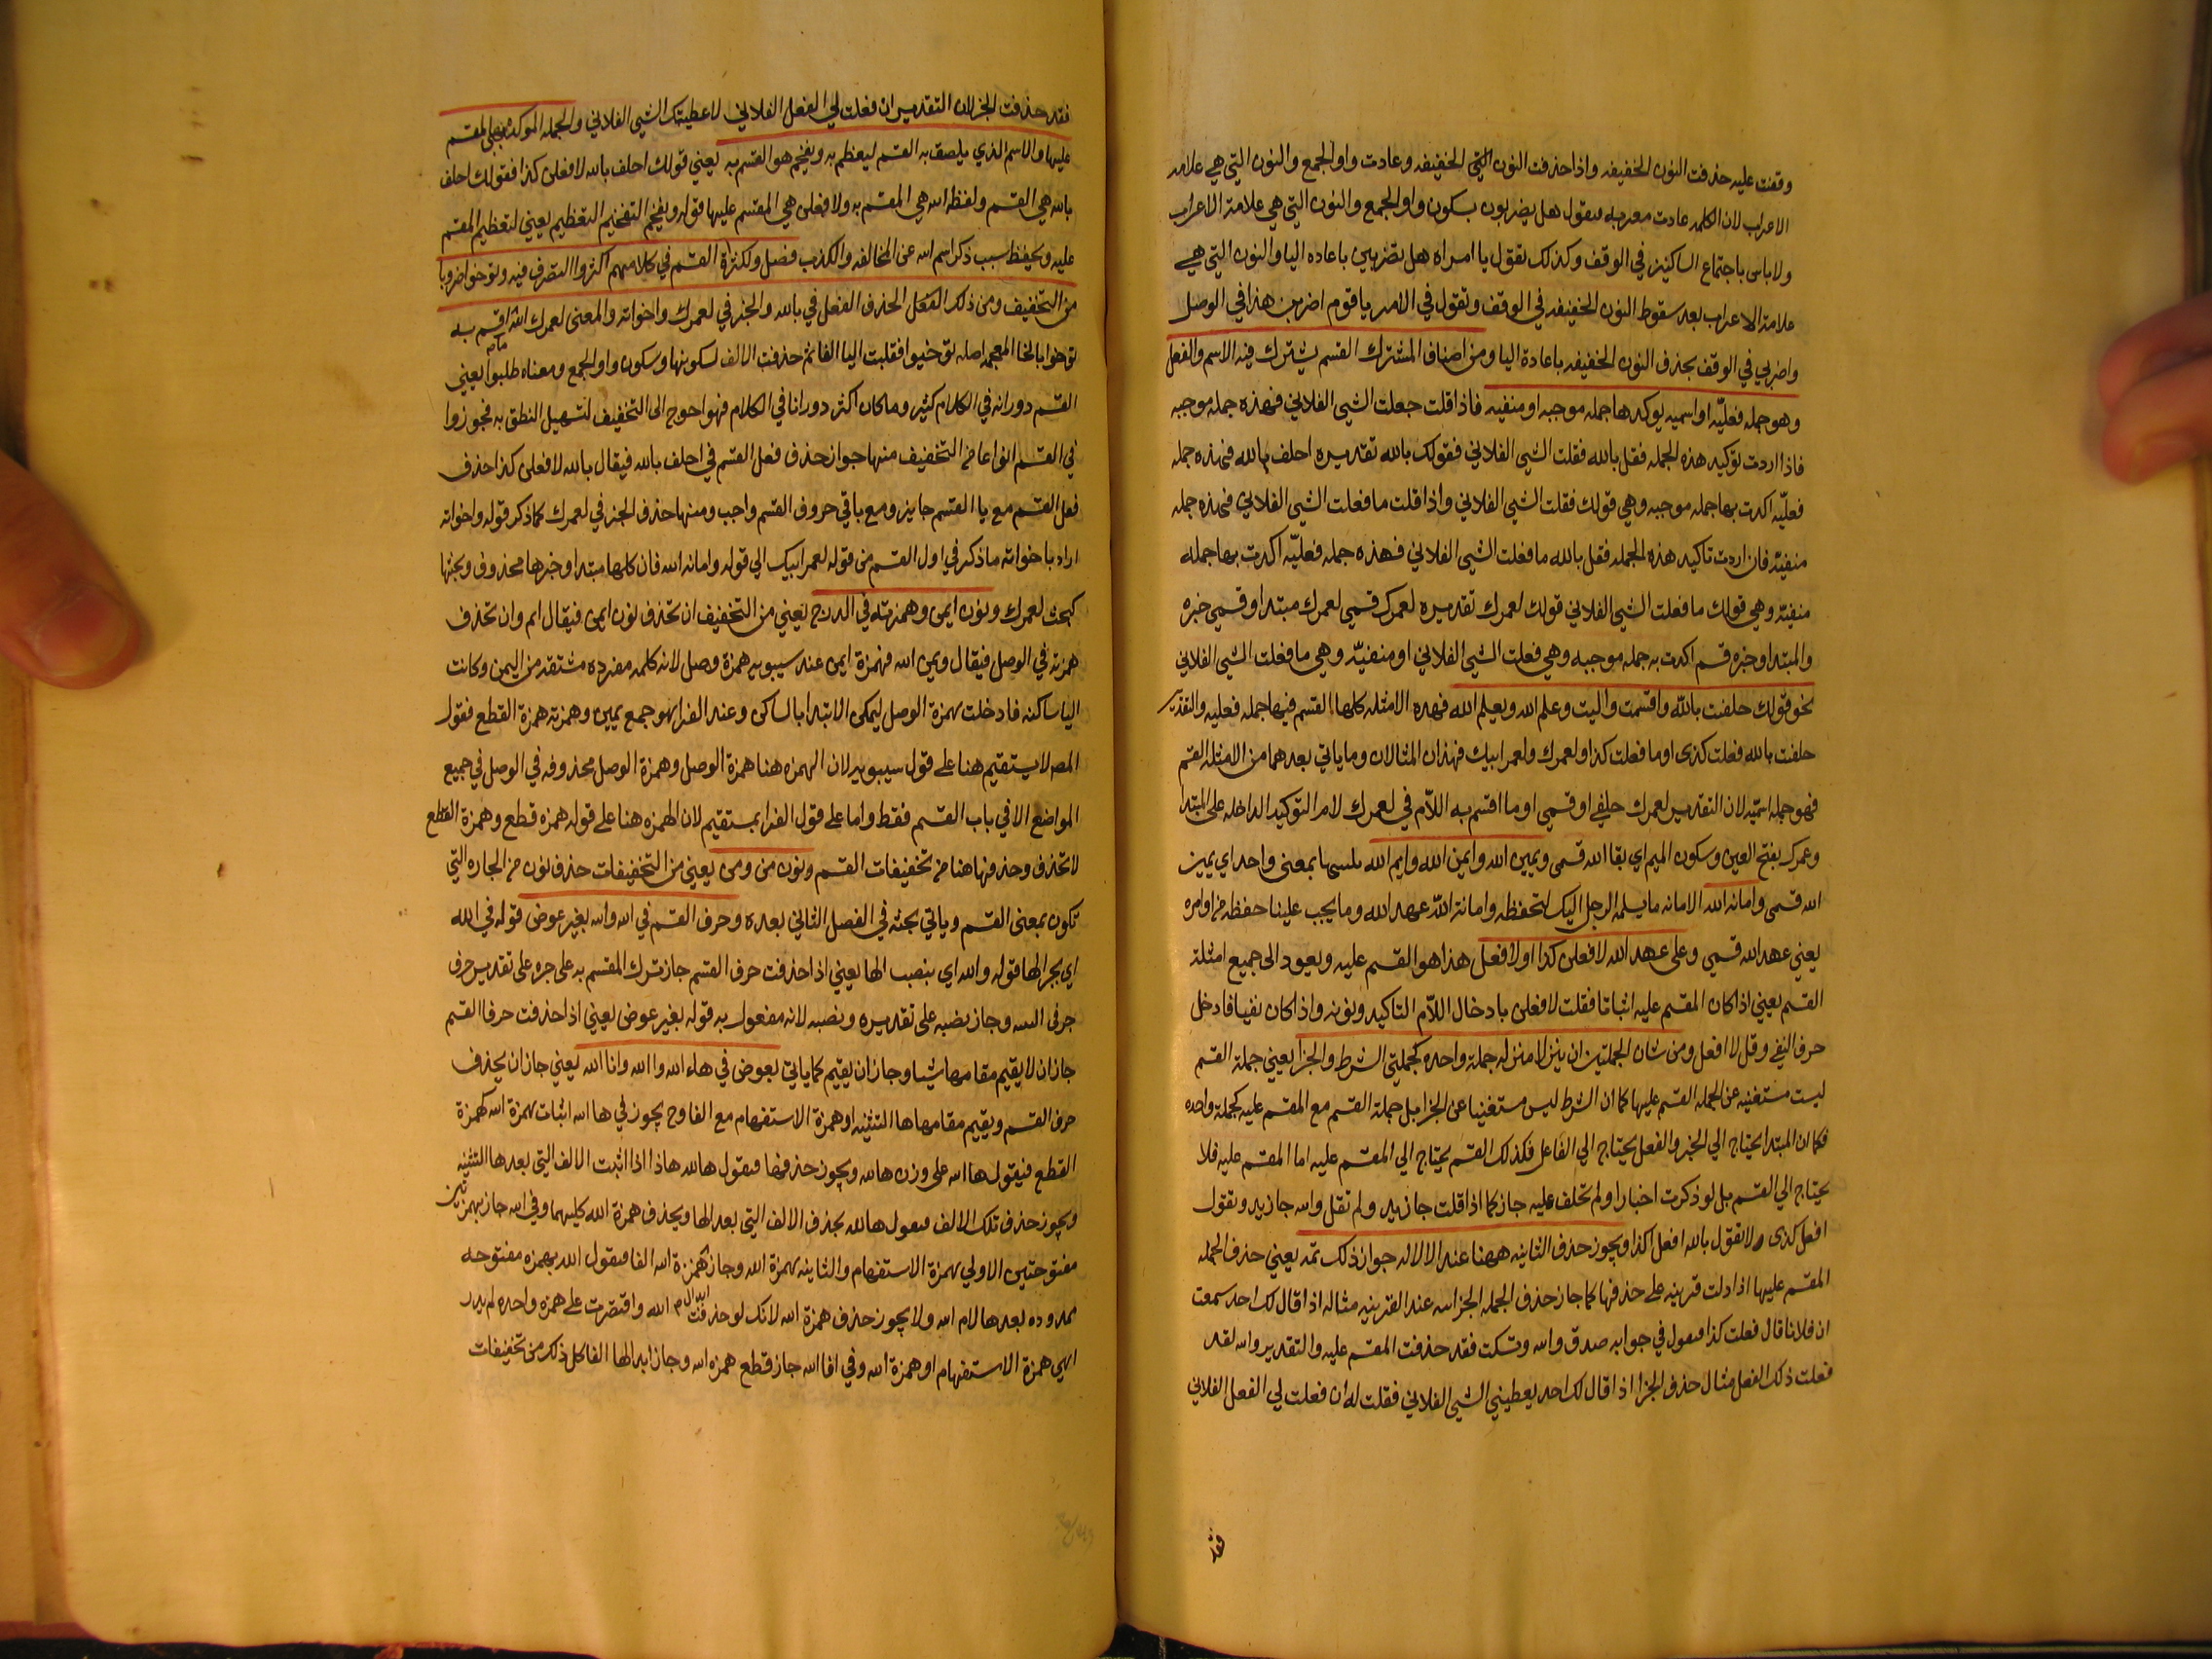 وقفت عليه حذفت النون الخفيفه واذا حذفت النون الخفيفه وعادت واو الجمع والنون التي هي علامه
الاعراب لان الكلمه عادت معربه فتقول هل يضربون بسكون واو الجمع والنون التي هي علامة الاعراب
ولا باس باجتماع الساكنين في الوقف وكذلك تقول يا امراه هل تضربين باعاده اليا والنون التي هي
علامة الاعراب بعد سقوط النون الخفيفه في الوقف وتقول في الامر يا قوم اضربن هذا في الوصل
واضربي في الوقف بحذف النون الخفيفه باعادة اليا ومن اصناف المشترك القسم يشترك فيه الاسم والفعل
وهو جمله فعليّه او اسميه يوكد بها جمله موجبه او منفيه فاذا قلت جعلت الشي الفلاني فهذه جمله موجبه
فاذا اردت توكيد هذه الجمله فقل بالله فقلت الشي الفلاني فقولك بالله تقديره احلف بالله فهذه جمله
فعليّه اكدت بها جمله موجبه وهي قولك فقلت الشي الفلاني واذا قلت ما فعلت الشي الفلاني فهذه جمله
منفيّه فان اردت تاكيد هذه الجمله فقل بالله ما فعلت الشي الفلاني فهذه جمله فعليّه اكدت بها جمله
منفيّه وهي قولك ما فعلت الشي الفلاني قولك لعمرك تقديره لعمرك قسمي لعمرك مبتدا وقسمي خبره
والمبتدا وخبره قسم اكدت به جمله موجبه وهي فعلت الشي الفلاني او منفيّه وهي ما فعلت الشي الفلاني
نحو قولك حلفت بالله واقسمت واليت وعلم الله ويعلم الله فهذه الامثله كلها القسم فيها جمله فعليه والتقدير
حلفت بالله فعلت كذى او ما فعلت كذا ولعمرك ولعمر ابيك فهذان المثالان وما ياتي بعدهما من الامثله القسم
فهو جمله اسميه لان التقدير لعمرك حلفي او قسمي او ما اقسم به اللّام في لعمرك لام التوكيد الداخله على المبتدا
وعمرك بفتح العين وسكون الميم اي بقا الله قسمى ويمين الله وايمن الله وايم الله بمعنى واحد اي يمين
الله قسمى وامانه الله الامانه ما يسلمه الرجل اليك لتحفظه وامانة الله عهد الله وما يجب علينا حفظه من اوامره
يعني عهد الله قسمي وعلى عهد الله لافعلن كذا او لا افعل هذا هو القسم عليه ويعود الى جميع امثلة
القسم يعني اذا كان المقسم عليه اثباتا فقلت لافعلن بادخال اللّام التاكيد ونونه واذا كان نفيا فادخل
حرف النفي وقل لا افعل ومن شان الجملتين ان ينزلا منزله جملة واحده كجملتي الشرط والجزا يعني جملة القسم
ليست مستغنيه عن الجمله القسم عليها كما ان الشرط ليس مستغنيا عن الجزا بل جملة القسم مع المقسم عليه كجملة واحده
فكما ان المبتدا يحتاج الي الخبر والفعل يحتاج الي الفاعل فكذلك القسم يحتاج الي المقسم عليه اما المقسم عليه فلا
يحتاج الي القسم بل لو ذكرت اخبارا ولم تحلف عليه جاز كما اذا قلت جا زيد ولم تقل والله جا زيد وتقول
افعل كذى ولا تقول بالله افعل كذا ويجوز حذف الثانيه ههنا عند الالاله جواز ذلك ثمه يعني حذف الجمله
المقسم عليها اذا دلت قرينه على حذفها كما جاز حذف الجمله الجزائيه عند القرينه مثاله اذا قال لك احد سمعت
ان فلانا قال فعلت كذا فتقول في جوابه صدق والله وتسكت فقد حذفت المقسم عليه والتقدير والله لقد
فعلت ذلك الفعل مثال حذف الجزا اذا قال لك احد يعطيني الشي الفلاني فقلت له ان فعلت لي الفعل الفلاني
فقد
فقد حذفت الجزا لان التقدير ان فعلت لي الفعل الفلاني لاعطيتك الشي الفلاني والجمله الموكده هي المقسم
عليها والاسم الذي يلصق به القسم ليعظم به ويفخم هو المقسم به يعني قولك احلف بالله لافعلن كذا فقولك احلف
بالله هي القسم ولفظه الله هي المقسم به ولافعلن هي المقسم عليها قوله ويفخم التفخيم التعظيم يعني لتعظيم المقسم
عليه ويحفظ بسبب ذكر اسم الله عن المخالفه والكذب فصل ولكثرة القسم في كلامهم اكثروا التصرف فيه وتوخوا ضروبا
من التخفيف ومن ذلك الحذف الفعل في بالله والخبر في لعمرك واخواته والمعنى لعمرك اقسم به
توخوا بالخا المعجمه اصله توخيوا فقلبت اليا الفا ثم حذفت الالف لسكونها وسكون واو الجمع ومعناه طلبوا يعني
القسم دورانه في الكلام كثير وما كان اكثر دورانا في الكلام فهو احوج الى التخفيف لتسهيل النطق به فجوزوا
في القسم انواعا من التخفيف منها جواز حذف فعل القسم في احلف بالله فيقال بالله لافعلن كذا حذف
فعل القسم مع با القسم جايز ومع باقي حروف القسم واجب ومنها حذف الخبر في لعمرك كما ذكر قوله واخواته
اراد باخواته ما ذكر في اول القسم من قوله لعمر ابيك الي قوله وامانه الله فان كلها مبتدا وخبرها محذوف وبحثها
كبحث لعمرك ونون ايمن وهمزته في الدرج يعني من التخفيف ان تحذف نون ايمن فيقال ايم وان تحذف
همزته في الوصل فيقال ويمن الله فهمزة ايمن عند سيبويه همزة وصل لانه كلمه مفرده مشتقه من اليمن وكانت
اليا ساكنه فادخلت همزة الوصل ليمكن الابتدا بالساكن وعند الفرا هو جمع يمين وهمزته همزة القطع فقول
المص لا يستقيم هنا على قول سيبويه لان الهمزه هنا همزة الوصل وهمزة الوصل محذوفه في الوصل في جميع
المواضع الا في باب القسم فقط واما على قول الفرا يستقيم لان الهمزه هنا على قوله همزه قطع وهمزة القطع
لا تحذف وحذفها هنا من تخفيفات القسم ونون من ومن يعني من التخفيفات حذف نون من الجاره التي
تكون بمعنى القسم وياتي بحثه في الفصل الثاني بعده وحرف القسم في الله والله بغير عوض قوله في الله
اي بجر الها قوله والله اي بنصب الها يعني اذا حذفت حرف القسم جاز ترك المقسم به على جره على تقدير حرف
جر في الله وجاز نصبه على تقديره ونصبه لانه مفعول به قوله بغير عوض يعني اذا حذفت حرف القسم
جاز ان لا يقيم مقامها شيا وجاز ان يقيم كما ياتي بعوض في هاء الله وا الله وانا الله يعني جاز ان يحذف
حرف القسم ويقيم مقامها ها التنبيه او همزة الاستفهام مع الفا وح يجوز في ها الله اثبات همزة الله كهمزة
القطع فيقول ها الله على وزن هالله ويجوز حذفها فتقول هالله هاذا اذا اثبت الالف التي بعدها التنبيه
ويجوز حذف تلك الالف فتقول هالله بحذف الالف التي بعد الها وبحذف همزة الله كليهما وفي الله جاز بهمزتين
مفتوحتين الاولي همزة الاستفهام والثانيه همزة الله وجاز همزة الله الفا فتقول الله بهمزه مفتوحه
ممدوده بعدها لام الله ولا يجوز حذف همزة الله لانك لو حذفت الله واقتصرت على همزه واحده لم يدر
اهي همزة الاستفهام او همزة الله وفي افا الله جاز قطع همزه الله وجاز ابدالها الفا كل ذلك من تخفيفات